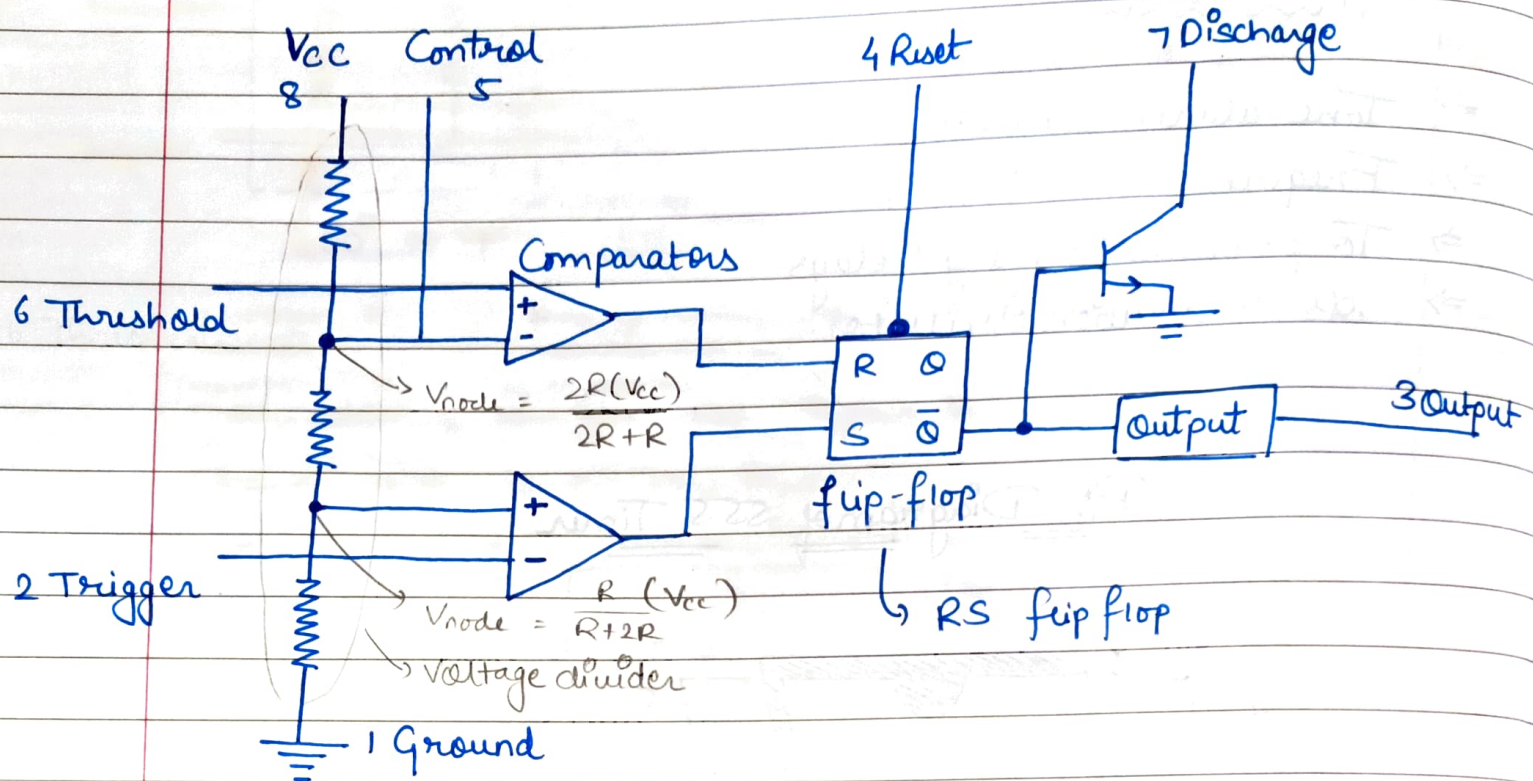 Vcc Control
8 5
4 Reset
7 Discharge
Comparators
6 Threshold
+
-
Vnode = 2R(Vcc) / 2R+R
R Q
S Q̅
Output
3 Output
flip-flop
+
-
2 Trigger
Vnode = R / R+2R (Vcc)
RS flip flop
Voltage divider
1 Ground